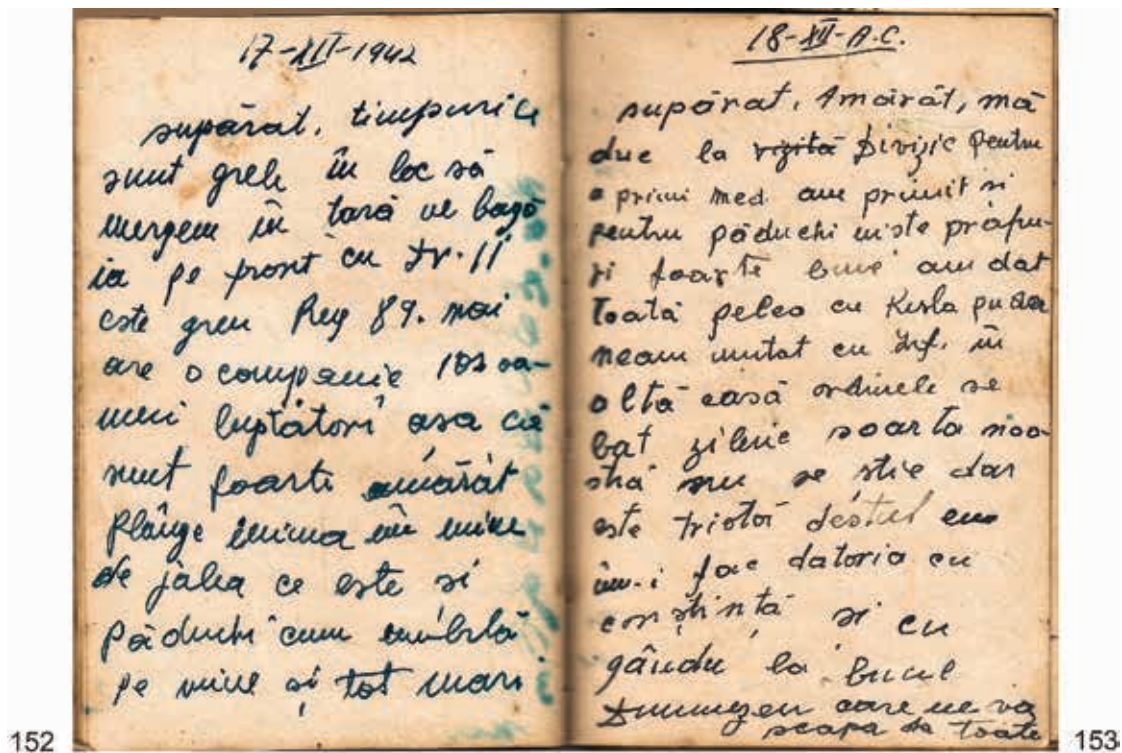 17-XII-1942
supărat, timpurile
sunt grele în loc să
mergem în tară ne bagă
ia pe front cu Dv. 11
este greu Reg 89. mai
are o companie 102 oa-
meni luptători asa că
sunt foarte amărât
Plânge inima în mine
de jalea ce este si
Păduchi cum umblă
pe mine și tot mari
152
18-XII-A.C.
supărat, Amărât, mă
duc la vizită Divizie pentru
a primi med am primit si
pentru păduchi niste prafu-
ri foarte bune am dat
toată pelea cu
neam mutat cu în
altă casă ordinele se
bat zilnic soarta noa-
stră nu se stie dar
este tristă destul eu
îm-i fac datoria cu
conștintă si cu
gându la bunul
Dumnezeu care ne va
scapa de toate
153